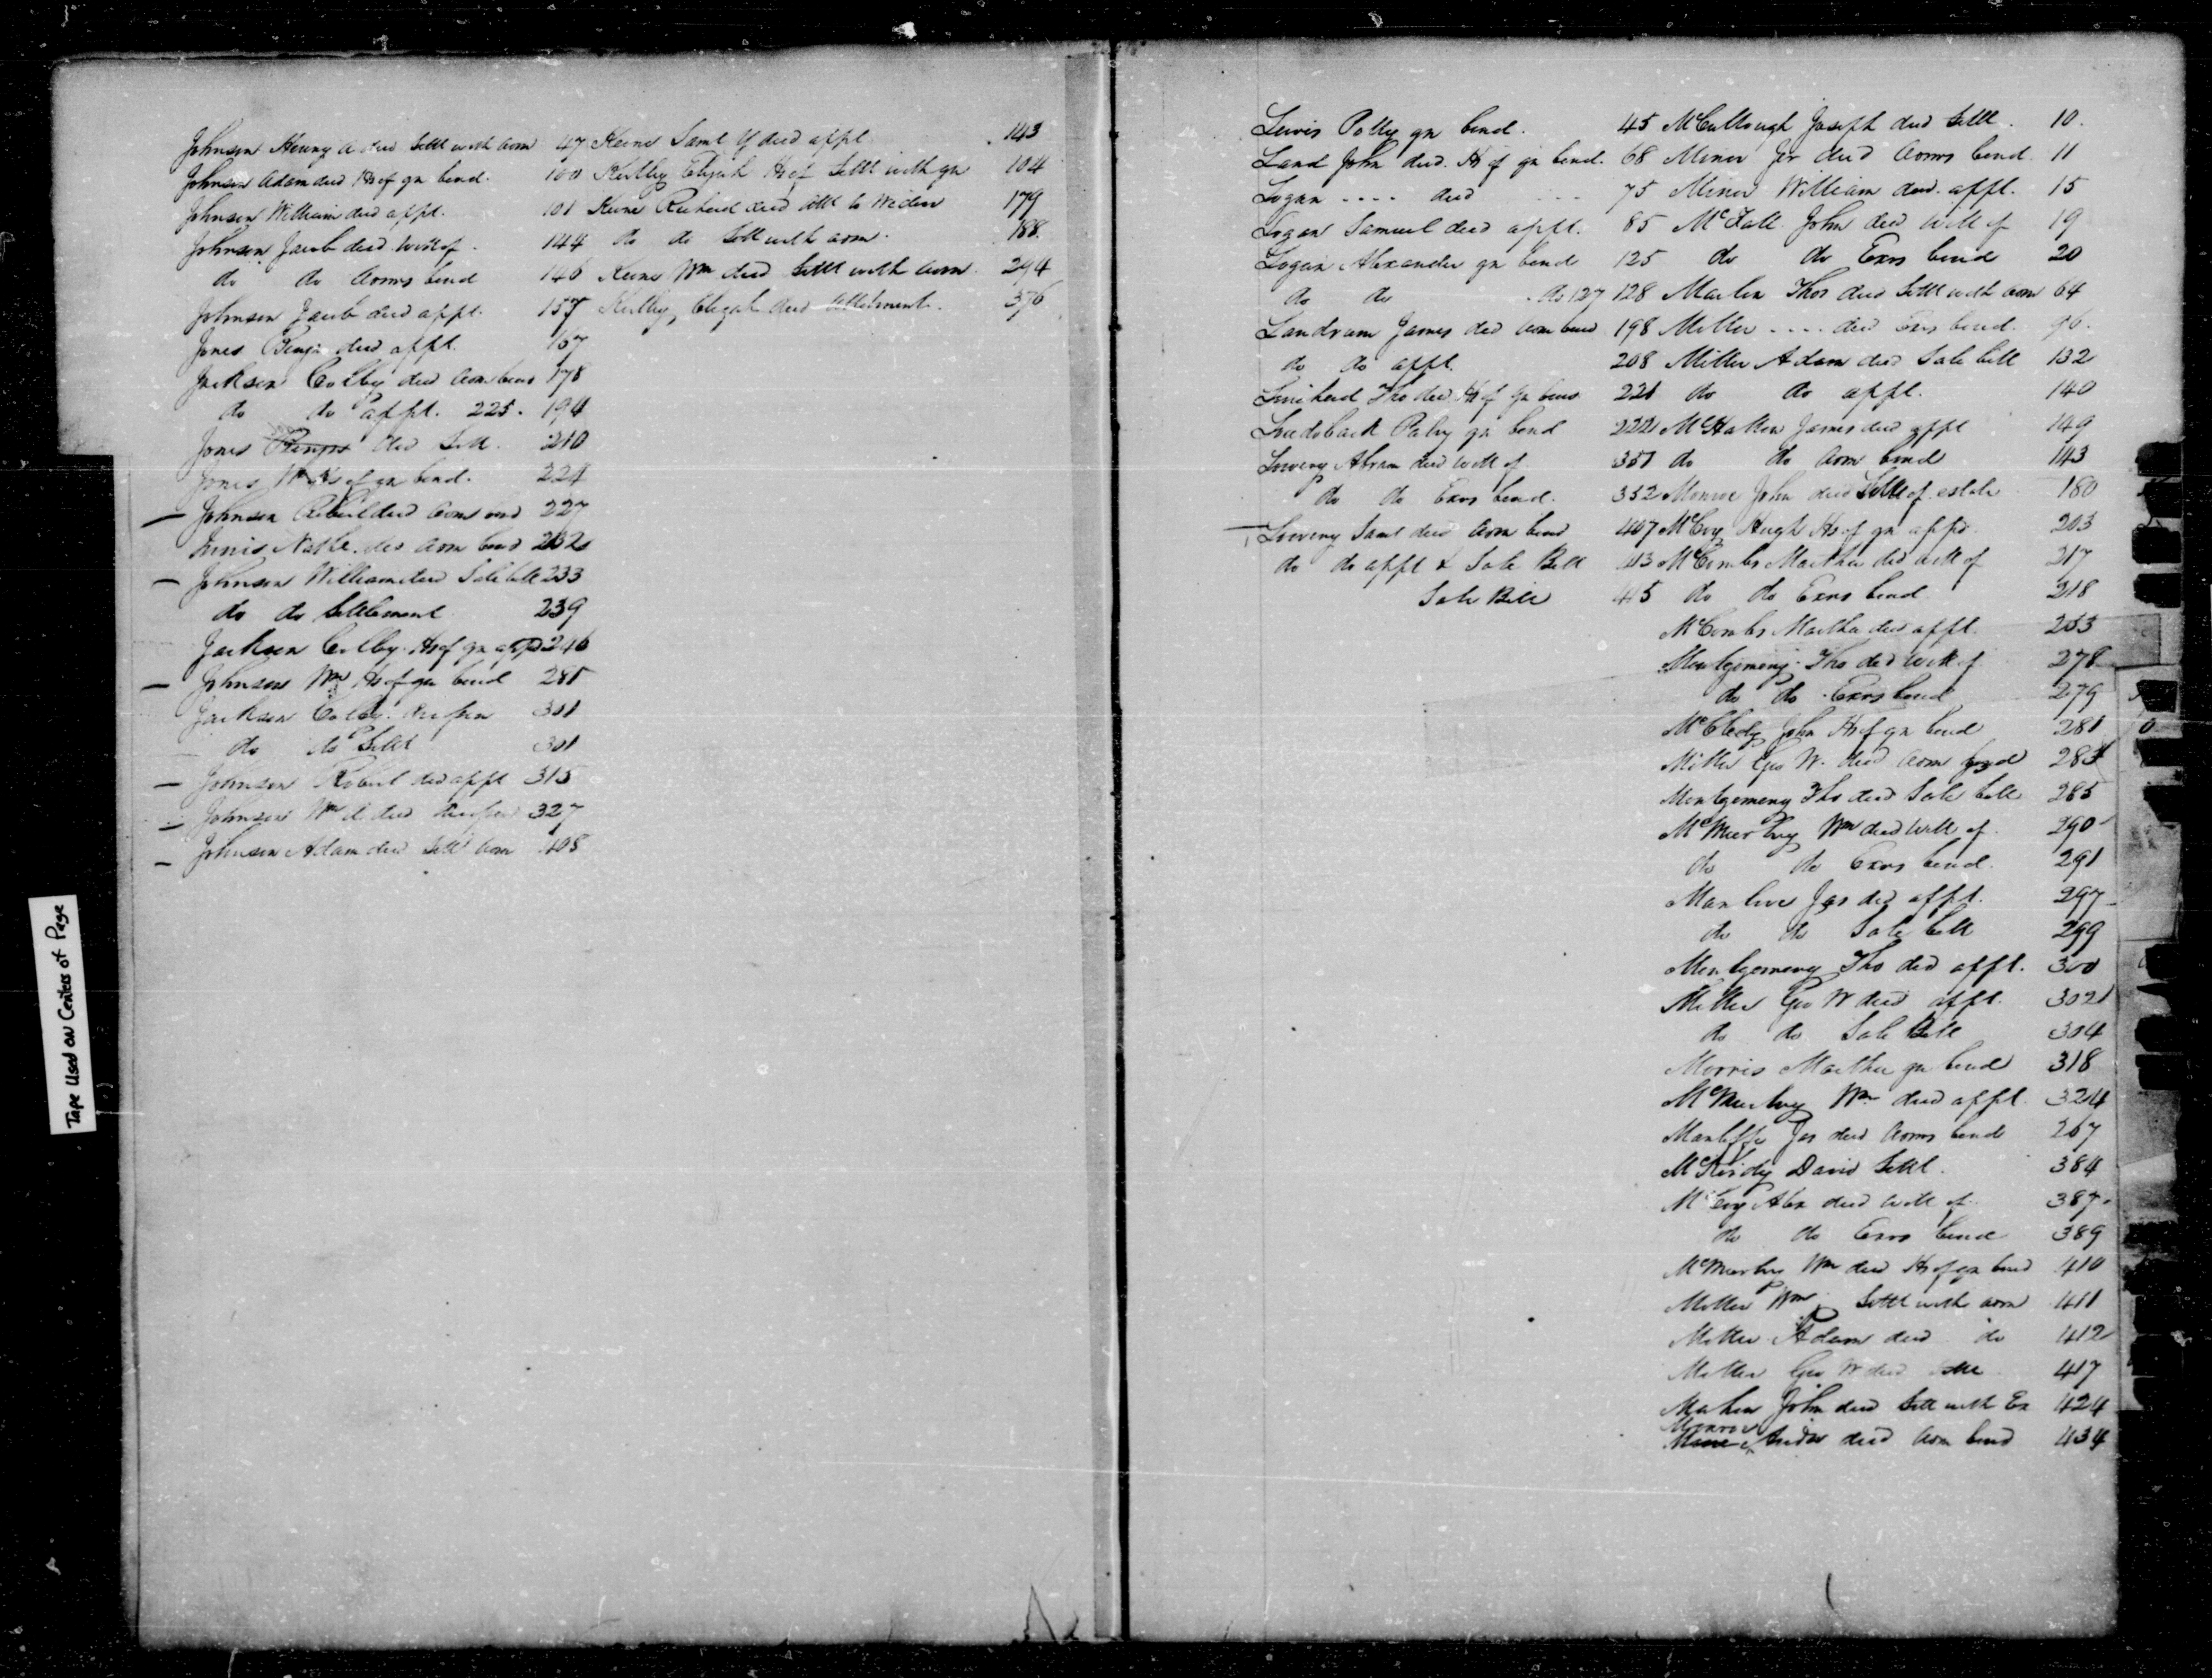 Johnson Henry A decd Settt with Adm 47
Johnson Adam decd Hs of gn bond. 100
Johnson William decd appt. 101
Johnson Jacob decd Will of. 144
do do Admrs bond 146
Johnson Jacob decd appt. 157
Jones Benja decd appt. 167
Jackson Colby decd Adm bond 178
do do appt. 225. 194
Jones decd Sett. 210
Jones Wm Hs of gn bond. 224
Johnson Robert decd Adms bond 227
Innis Nathl. decd Adm bond 232
Johnson William decd Sale bill 233
do do Settlement 239
Jackson Colby Hs of gn appd 246
Johnson Wm Hs of gn bond 285
Jackson Colby 301
do do Settt 301
Johnson Robert decd appt 315
Johnson Wm decd 327
Johnson Adam decd Sett Adm 408
Keene Saml Y decd appt. 143
Kirtley Elijah Hs of Settt with gn 104
Keene Richard decd allt to Widow 179
do do Sett with adm. 188
Keene Wm decd Settt with Adm. 294
Kirtley, Elijah decd Settlement. 376
Lewis Polly gn bond. 45
Land John decd. Hs of gn bond. 68
Logan .... decd ... 75
Logan Samuel decd appt. 85
Logan Alexander gn bond 125
do do do 127 128
Landrum James decd Adm bond 198
do do appt. 208
Tho decd Hs of gn bond 221
gn bond 222
Lowery Abram decd Will of 351
do do Exrs bond. 352
Lowery Saml decd Adm bond 407
do do appt & Sale Bill 413
Sale Bill 415
McCullough Joseph decd Settt. 10.
Miner Jer decd Admrs bond. 11
Miner William decd. appt. 15
McFall John decd Will of 19
do do Exrs bond 20
Martin Thos decd Settt with Adm 64
Miller .... decd Exrs bond. 96.
Miller Adam decd Sale bill 132
do do appt. 140
McHatton James decd appt 149
do do Adm bond 143
Monroe John decd Settt of estate 180
McCoy Hugh Hs of gn appd 203
McCombs Martha decd Will of 217
do do Exrs bond 218
McCombs Martha decd appt. 253
Montgomery Tho decd Will of 278
do do Exrs bond 279
John Hs of gn bond 281
Miller Geo W. decd Adm bond 283
Montgomery Tho decd Sale bill 285
McMurtry Wm decd Will of 290
do do Exrs bond. 291
Manlove Jas decd appt. 297
do do Sale bill 299
Montgomery Tho decd appt. 300
Miller Geo W decd appt. 302
do do Sale Bill 304
Morris Martha gn bond 318
McMurtry Wm decd appt. 324
Jas decd Admrs bond 267
David Settt. 384
McCoy Alex decd Will of 387
do do Exrs bond 389
McMurtry Wm decd Hs of gn bond 410
Miller Wm Settt with adm 411
Miller Adam decd do 412
Miller Geo W decd Settt 417
John decd Sett with Ex 424
Monroe
decd Adm bond 434
Tape Used on Centers of Page